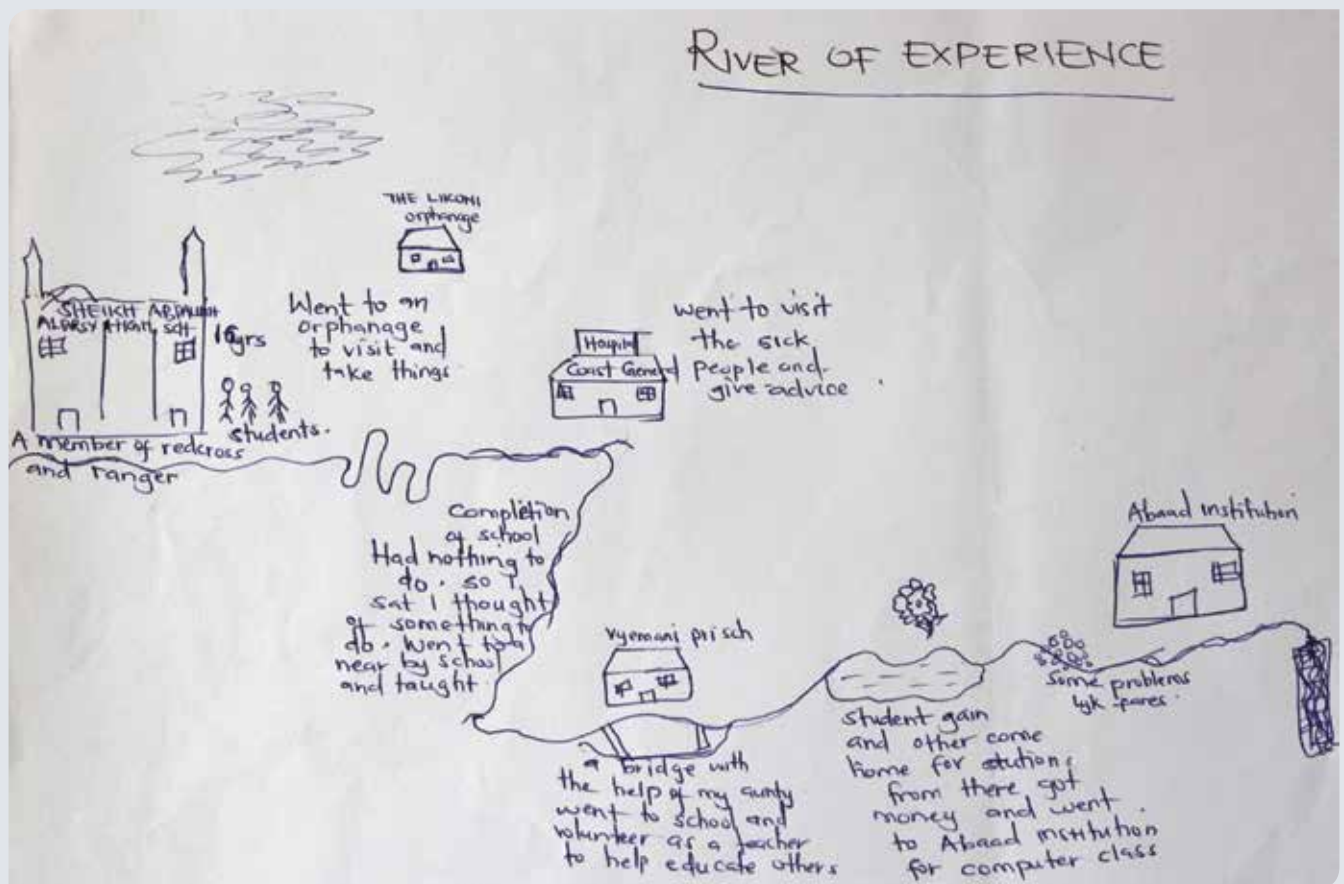 RIVER OF EXPERIENCE
THE LIKONI
orphanage
SHEIKH ABDALLAH
SCH
16yrs
students.
A member of redcross
and ranger
Went to an
orphanage
to visit and
take things.
Hospital
Coast General
went to visit
the sick
people and
give advice
Completion
of school
Had nothing to
do. so I
sat I thought
of something to
do. Went to a
near by school
and taught
Vyemani pri sch
a bridge with
the help of my aunty
went to school and
volunteer as a teacher
to help educate others
student gain
and other come
home for
from there got
money and went
to Abaad institution
for computer class
some problems
lyk fares.
Abaad institution